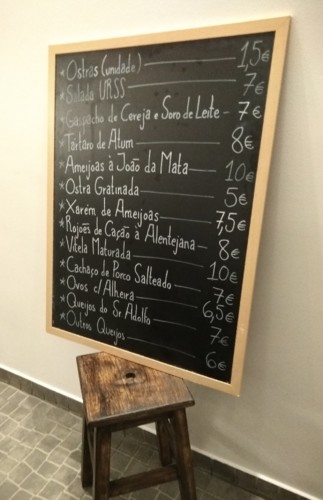 * Ostras (unidade) 1,5€
* Salada URSS 7€
* Gaspacho de Cereja e Soro de Leite - 7€
* Tártaro de Atum 8€
* Ameijoas à João da Mata 10€
* Ostra Gratinada 5€
* Xarém de Ameijoas 7,5€
* Rojões de Cação à Alentejana 8€
* Vitela Maturada 10€
* Cachaço de Porco Salteado 7€
* Ovos c/ Alheira 6,5€
* Queijos do Sr. Adolfo 7€
* Outros Queijos 6€